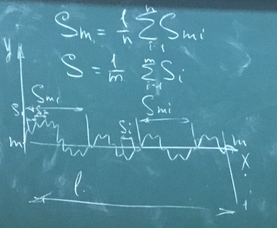 Sm = 1/n n∑i=1 Smi
S = 1/m m∑i=1 Si
y
Smi
Smi
Si
Si
m
m
x
l